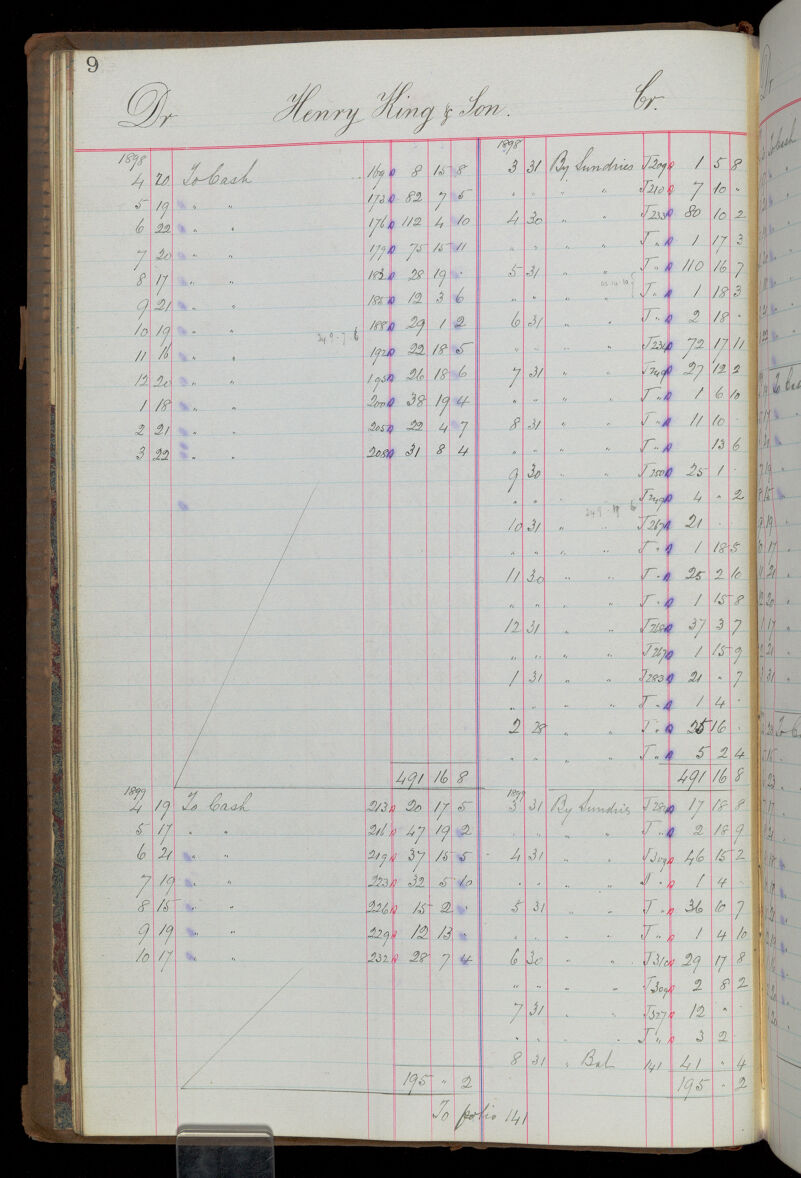 9
Dr Henry King & Son. Cr.
1898 1898
4 20 To Cash 169 8 15 8 3 31 By Sundries J209 1 5 8
5 19 " " 173 82 7 5 " " " " J210 7 10 "
6 22 " " 176 112 4 10 4 30 " " J233 80 10 2
7 20 " " 179 75 15 11 " " " " J " 1 17 3
8 17 " " 183 28 19 " 5 31 " " J " 110 16 7
9 21 " " 186 12 3 6 " " " " J " 1 18 3
10 19 " " 188 29 1 2 6 31 " " J " 2 18 "
11 16 " " 192 22 18 5 " " " " J234 72 17 11
12 20 " " 195 26 18 6 7 31 " " J249 27 12 2
1 18 " " 200 38 19 4 " " " " J " 1 6 10
2 21 " " 205 22 4 7 8 31 " " J " 11 10 "
3 22 " " 208 31 8 4 " " " " J " 13 6
9 30 " " J250 25 1 "
" " " " J249 4 " 2
10 31 " " J267 21 "
" " " " J " 1 18 5
11 30 " " J " 25 2 10
" " " " J " 1 15 8
12 31 " " J268 37 3 7
" " " " J267 1 15 9
1 31 " " J283 21 " 7
" " " " J " 1 4 "
2 28 " " J " 25 16 "
" " " " J " 5 2 4
491 16 8 491 16 8
1899 1899
4 19 To Cash 213 20 17 5 3 31 By Sundries J284 17 18 8
5 17 " " 216 47 19 2 " " " " J " 2 18 9
6 21 " " 219 37 15 5 4 31 " " J309 46 15 2
7 19 " " 223 32 5 10 " " " " J " 1 4 "
8 15 " " 226 15 2 " 5 31 " " J " 36 10 7
9 19 " " 229 12 13 " " " " " J " 1 4 10
10 17 " " 232 28 7 4 6 30 " " J310 29 17 8
" " " " J309 2 8 2
7 31 " " J327 12 " "
" " " " J " 3 2
8 31 " Bal 141 41 " 4
195 " 2 195 " 2
To folio 141